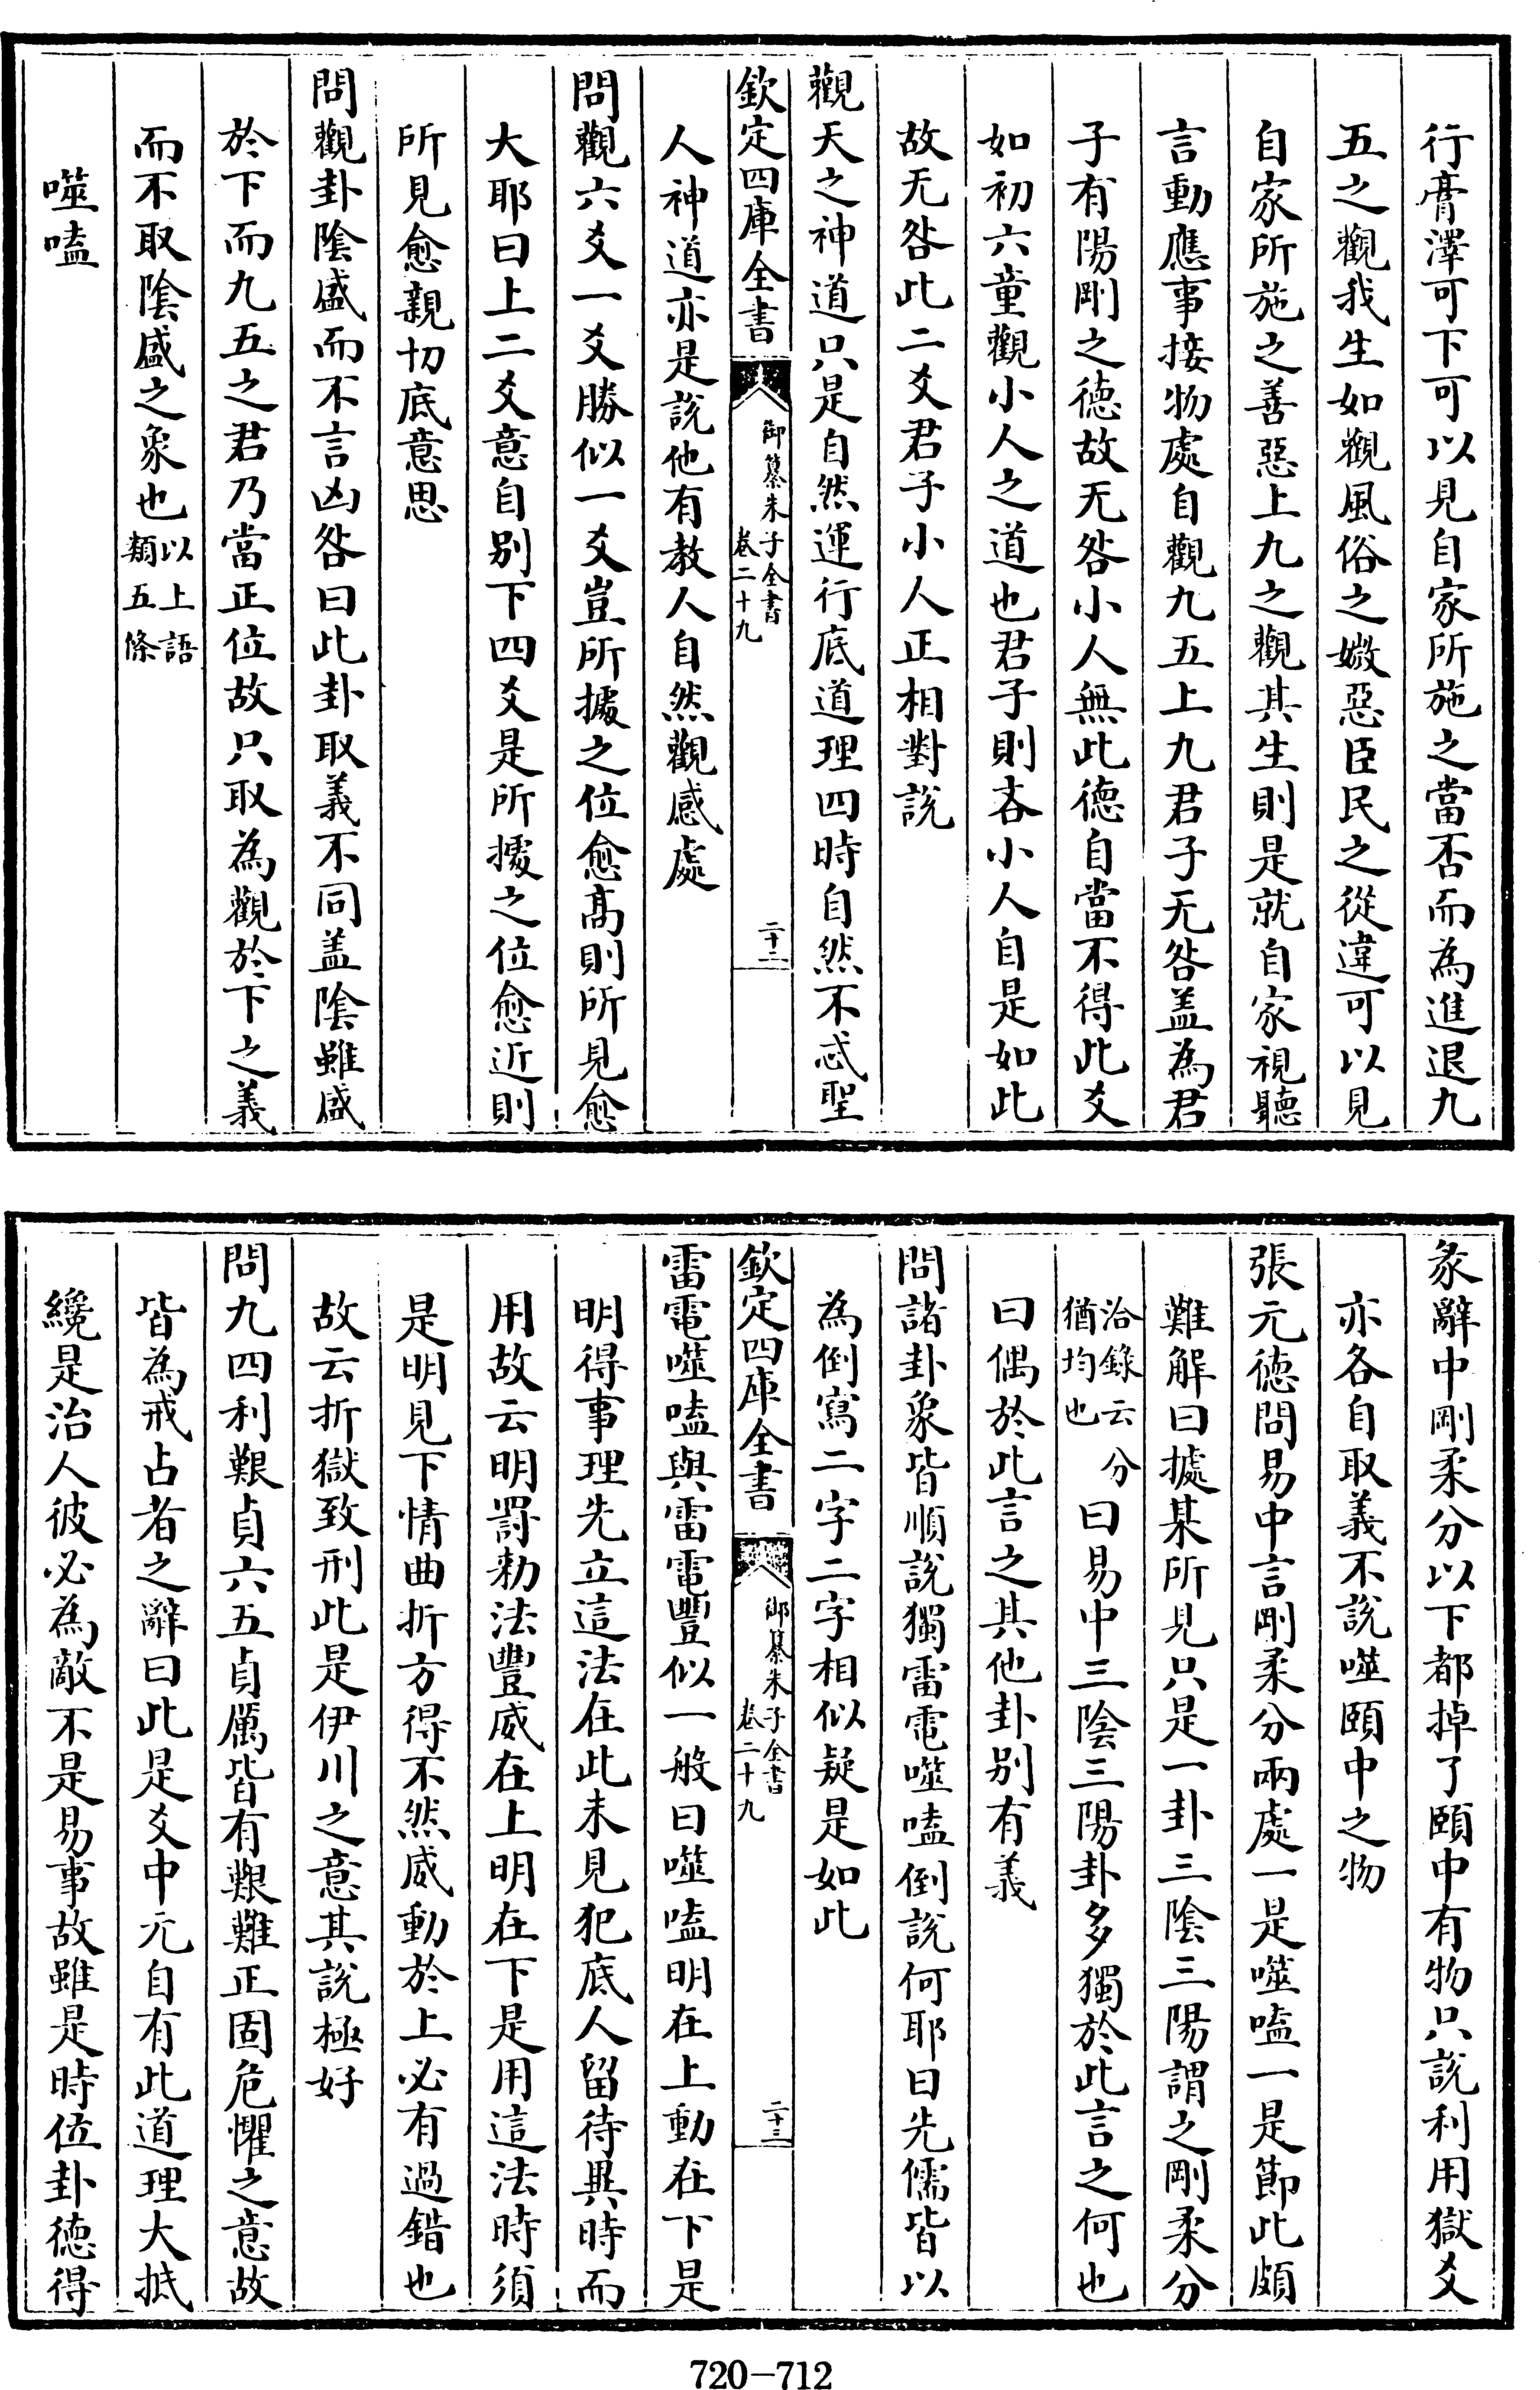 行膏澤可下可以見自家所施之當否而為進退九
五之觀我生如觀風俗之媺惡臣民之從違可以見
自家所施之善惡上九之觀其生則是就自家視聽
言動應事接物處自觀九五上九君子无咎盖為君
子有陽剛之德故无咎小人無此德自當不得此爻
如初六童觀小人之道也君子則吝小人自是如此
故无咎此二爻君子小人正相對說
觀天之神道只是自然運行底道理四時自然不忒聖
欽定四庫全書
御纂朱子全書
卷二十九
二十二
人神道亦是說他有教人自然觀感處
問觀六爻一爻勝似一爻豈所據之位愈髙則所見愈
大耶曰上二爻意自别下四爻是所據之位愈近則
所見愈親切底意思
問觀卦陰盛而不言凶咎曰此卦取義不同盖陰雖盛
於下而九五之君乃當正位故只取為觀於下之義
而不取陰盛之象也
以上語
類五條
噬嗑
彖辭中剛柔分以下都掉了頤中有物只說利用獄爻
亦各自取義不說噬頤中之物
張元德問易中言剛柔分兩處一是噬嗑一是節此頗
難解曰據某所見只是一卦三陰三陽謂之剛柔分
洽錄云分
猶均也
曰易中三陰三陽卦多獨於此言之何也
曰偶於此言之其他卦别有義
問諸卦象皆順說獨雷電噬嗑倒說何耶曰先儒皆以
為倒寫二字二字相似疑是如此
欽定四庫全書
御纂朱子全書
卷二十九
二十三
雷電噬嗑與雷電豐似一般曰噬嗑明在上動在下是
明得事理先立這法在此未見犯底人留待異時而
用故云明罰勅法豐威在上明在下是用這法時須
是明見下情曲折方得不然威動於上必有過錯也
故云折獄致刑此是伊川之意其說極好
問九四利艱貞六五貞厲皆有艱難正固危懼之意故
皆為戒占者之辭曰此是爻中元自有此道理大抵
纔是治人彼必為敵不是易事故雖是時位卦德得
720-712